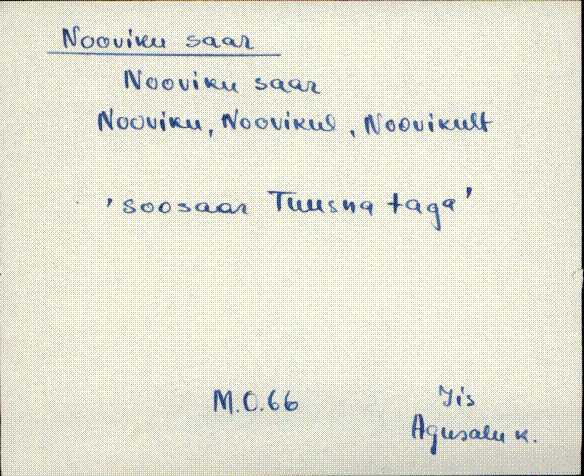 Nooviku saar
Nooviku saar
Nooviku, Noovikul, Noovikult
'soosaar Tuusna taga'
M.O.66
Iis
Agusalu k.